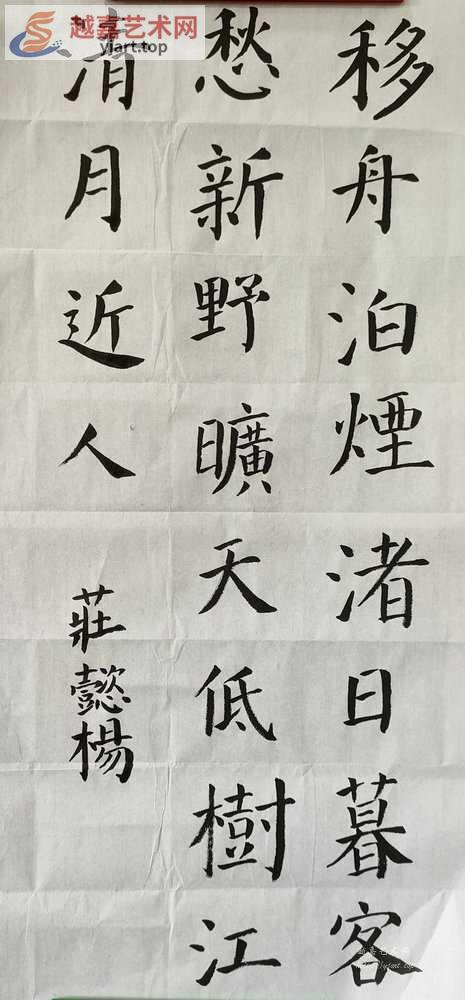 移舟泊煙渚日暮客
愁新野曠天低樹江
清月近人
莊懿楊
越嘉艺术网
yjart.top